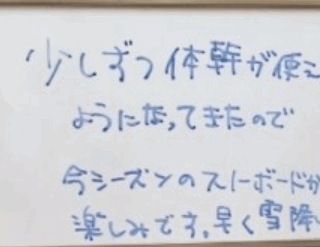 少しずつ体幹が使え
ようになってきたので
今シーズンのスノーボードが
楽しみです。早く雪降